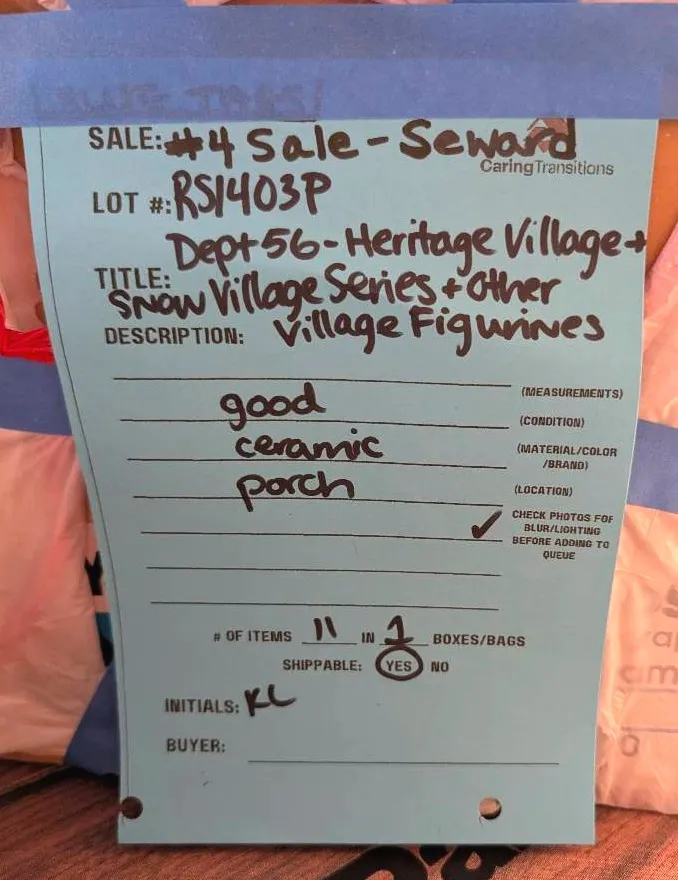 SALE: #4 Sale - Seward
CaringTransitions
LOT #: RS1403P
Dept 56 - Heritage Village +
TITLE:
Snow Village Series + Other
DESCRIPTION: Village Figurines
(MEASUREMENTS)
good (CONDITION)
ceramic (MATERIAL/COLOR
/BRAND)
porch (LOCATION)
✓ CHECK PHOTOS FOR
BLUR/LIGHTING
BEFORE ADDING TO
QUEUE
# OF ITEMS 11 IN 1 BOXES/BAGS
SHIPPABLE: YES NO
INITIALS: KL
BUYER: